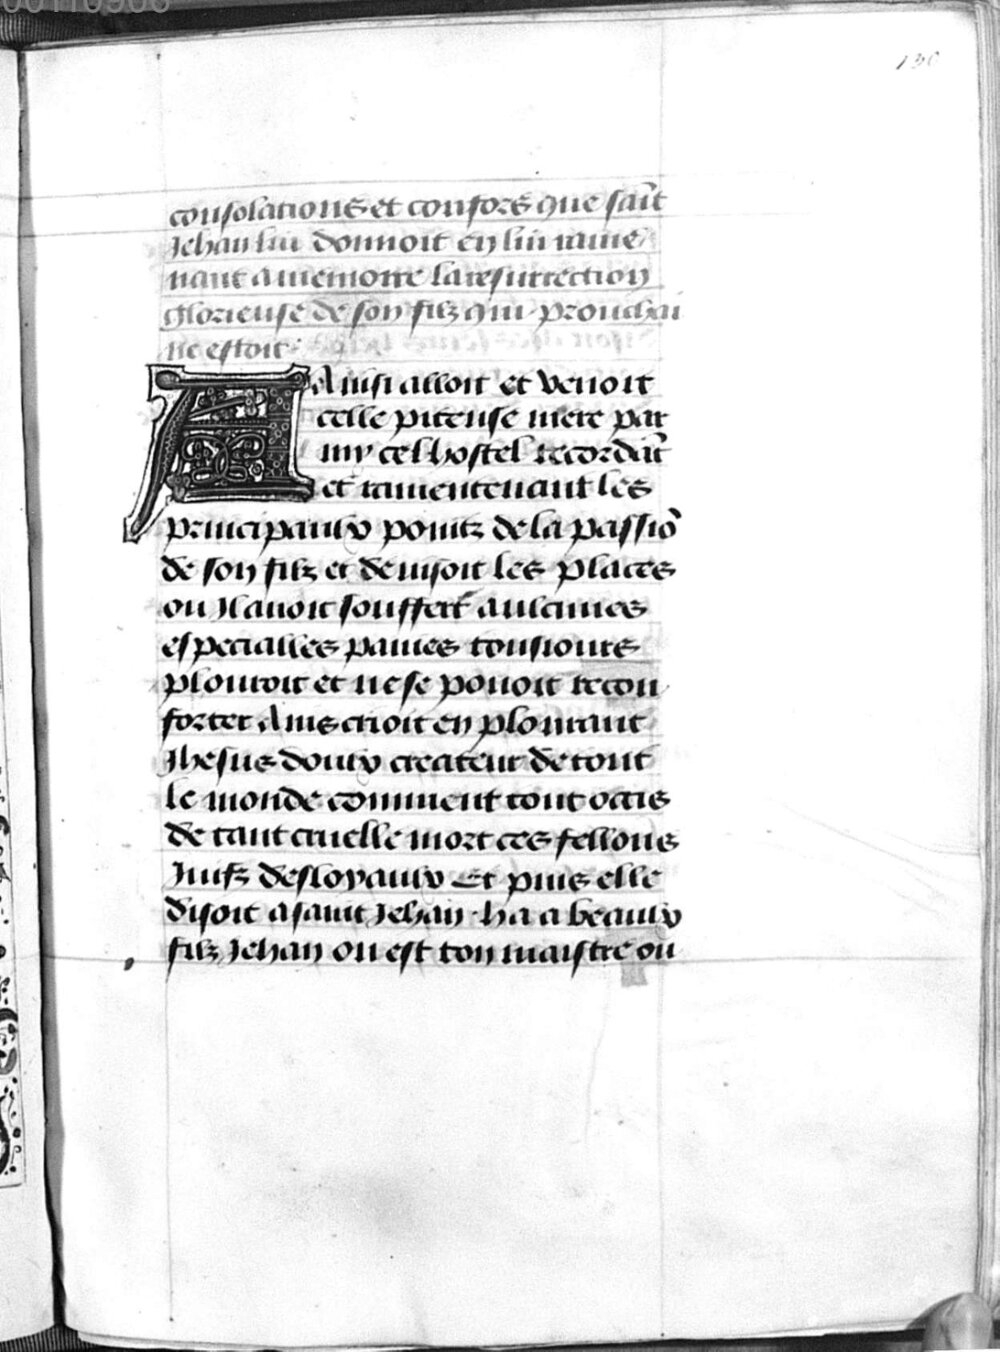 00110906
130
consolations et confors que sait̃
Jehan lui donnoit en lui rame
nant a memoire la resurrection
glorieuse de son filz qui prouchai
ne estoit
A Ainsi alloit et venoit
celle piteuse mere par
my cel hostel recordãt
et ramentenant les
principaulx pointz de la passiõ
de son filz et deuisoit les places
ou Jl auoit souffert aulcunes
especialles paines tousiours
plouroit et ne se pouoit recon
forter Ains crioit en plourant
Jhesus doulx createur de tout
le monde comment tout occis
de tant cruelle mort ces fellons
Juifz desloyaulx Et puis elle
disoit a saint Jehan · ha a beaulx
filz Jehan ou est ton maistre ou